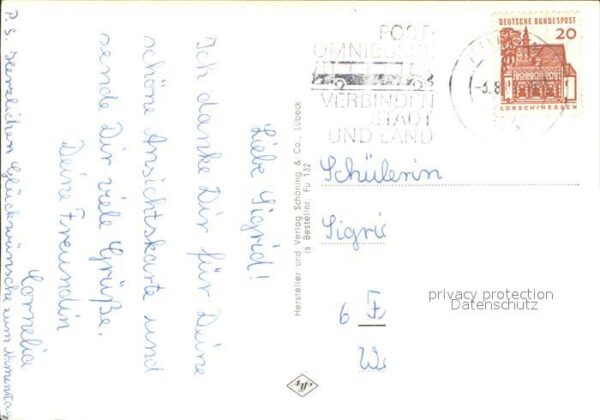 Liebe Sigrid!
Ich danke Dir für Deine
schöne Ansichtskarte und
sende Dir viele Grüße.
Deine Freundin
Cornelia
P. S. Herzlichen Glückwünsche zum Namenstag
Hersteller und Verlag Schöning & Co., Lübeck
is Bestellnr. Fü 132
POST-
OMNIBUSSE
VERBINDEN
STADT
UND LAND
-3.8
DEUTSCHE BUNDESPOST
20
LORSCH/HESSEN
Schülerin
Sigrid
6 F
We
privacy protection
Datenschutz